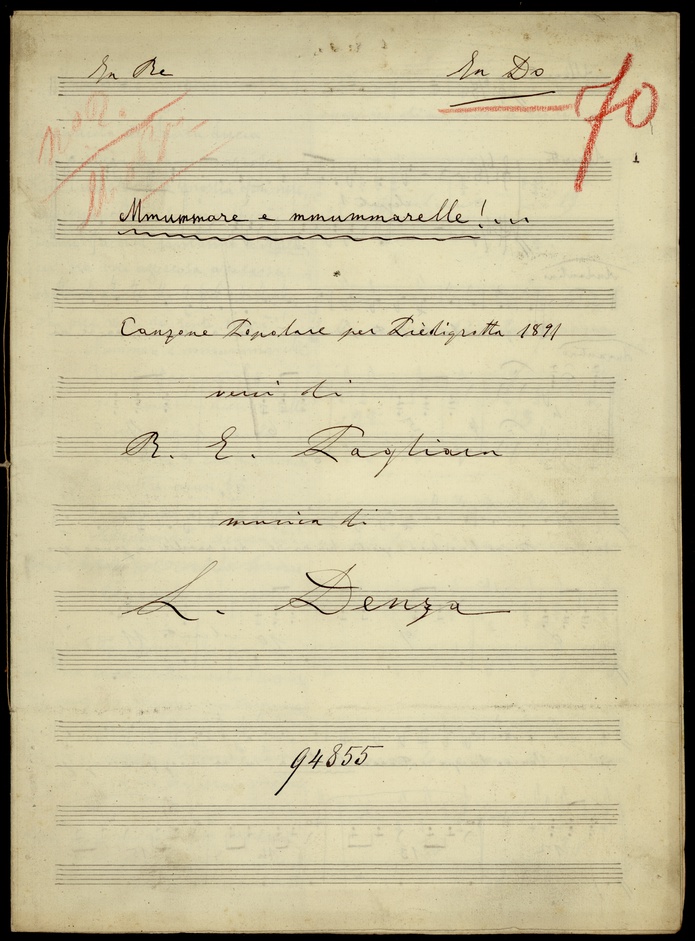 In Re In Do
70
1
Mmummare e mmummarelle!...
Canzone Popolare per Piedigrotta 1891
versi di
R. E. Pagliara
musica di
L. Denza
94855